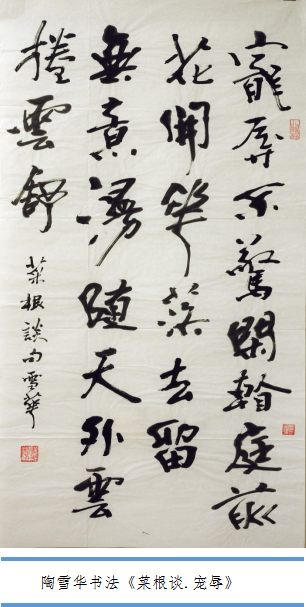 寵辱不驚閑看庭前
花開華落去留
無意漫隨天外雲
捲雲舒
菜根談句雪華
陶雪华书法《菜根谈.宠辱》